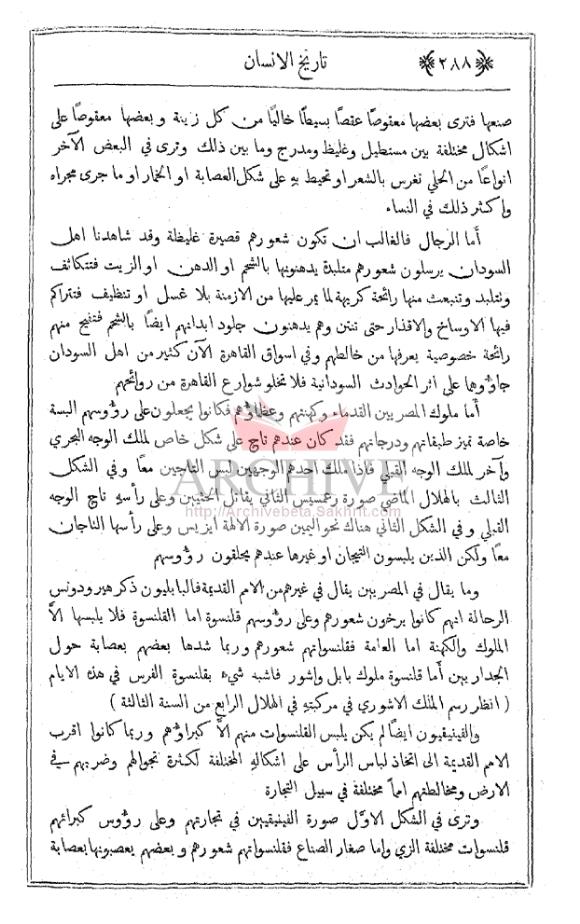 ﴿٢٨٨﴾ تاريخ الانسان
صنعها فترى بعضها معقوصًا عقصًا بسيطًا خاليًا من كل زينة وبعضها معقوصًا على
اشكال مختلفة بين مستطيل وغليظ ومدرج وما بين ذلك وترى في البعض الآخر
انواعًا من الحلي تغرس بالشعر او تحيط بهِ على شكل العصابة او الخمار او ما جرى مجراه
واكثر ذلك في النساء
أما الرجال فالغالب ان تكون شعورهم قصيرة غليظة وقد شاهدنا اهل
السودان يرسلون شعورهم متلبدة يدهنونها بالشحم او الدهن او الزيت فتتكاثف
وتتلبد وتنبعث منها رائحة كريهة لما يمر عليها من الازمنة بلا غسل او تنظيف فتتراكم
فيها الاوساخ والاقذار حتى تنتن وهم يدهنون جلود ابدانهم ايضًا بالشحم فتفيح منهم
رائحة خصوصية يعرفها من خالطهم وفي اسواق القاهرة الآن كثير من اهل السودان
جاؤوها على اثر الحوادث السودانية فلا تخلو شوارع القاهرة من روائحهم
أما ملوك المصريين القدماء وكهنتهم وعظاؤهم فكانوا يجعلون على رؤوسهم البسة
خاصة تميز طبقاتهم ودرجاتهم فقد كان عندهم تاج على شكل خاص لملك الوجه البحري
وآخر لملك الوجه القبلي فاذا ملك احدهم الوجهين لبس التاجين معًا وفي الشكل
ARCHIVE
الثالث بالهلال الماضي صورة رعمسيس الثاني يقاتل الحثيين وعلى رأسهِ تاج الوجه
http://Archivebeta.Sakhrit.com
القبلي وفي الشكل الثاني هناك نحو اليمين صورة الالهة ايزيس وعلى رأسها التاجان
معًا ولكن الذين يلبسون التيجان او غيرها عندهم يحلقون رؤوسهم
وما يقال في المصريين يقال في غيرهم من الامم القديمة فالبابليون ذكر هيرودونس
الرحالة انهم كانوا يرخون شعورهم وعلى رؤوسهم قلنسوة اما القلنسوة فلا يلبسها الاَّ
الملوك والكهنة اما العامة فقلنسواتهم شعورهم وربما شدها بعضهم بعصابة حول
الجدار بين أما قلنسوة ملوك بابل واشور فاشبه شيء بقلنسوة الفرس في هذه الايام
( انظر رسم الملك الاشوري في مركبتهِ في الهلال الرابع من السنة الثالثة )
والفينيقيون ايضًا لم يكن يلبس القلنسوات منهم الاَّ كبراؤهم وربما كانوا اقرب
الامم القديمة الى اتخاذ لباس الرأس على اشكاله المختلفة لكثرة تجوالهم وضربهم في
الارض ومخالطتهم امماً مختلفة في سبيل التجارة
وترى في الشكل الاوَّل صورة الفينيقيين في تجارتهم وعلى رؤوس كبرائهم
قلنسوات مختلفة الزي واما صغار الصناع فقلنسواتهم شعورهم وبعضهم يعصبونها بعصابة